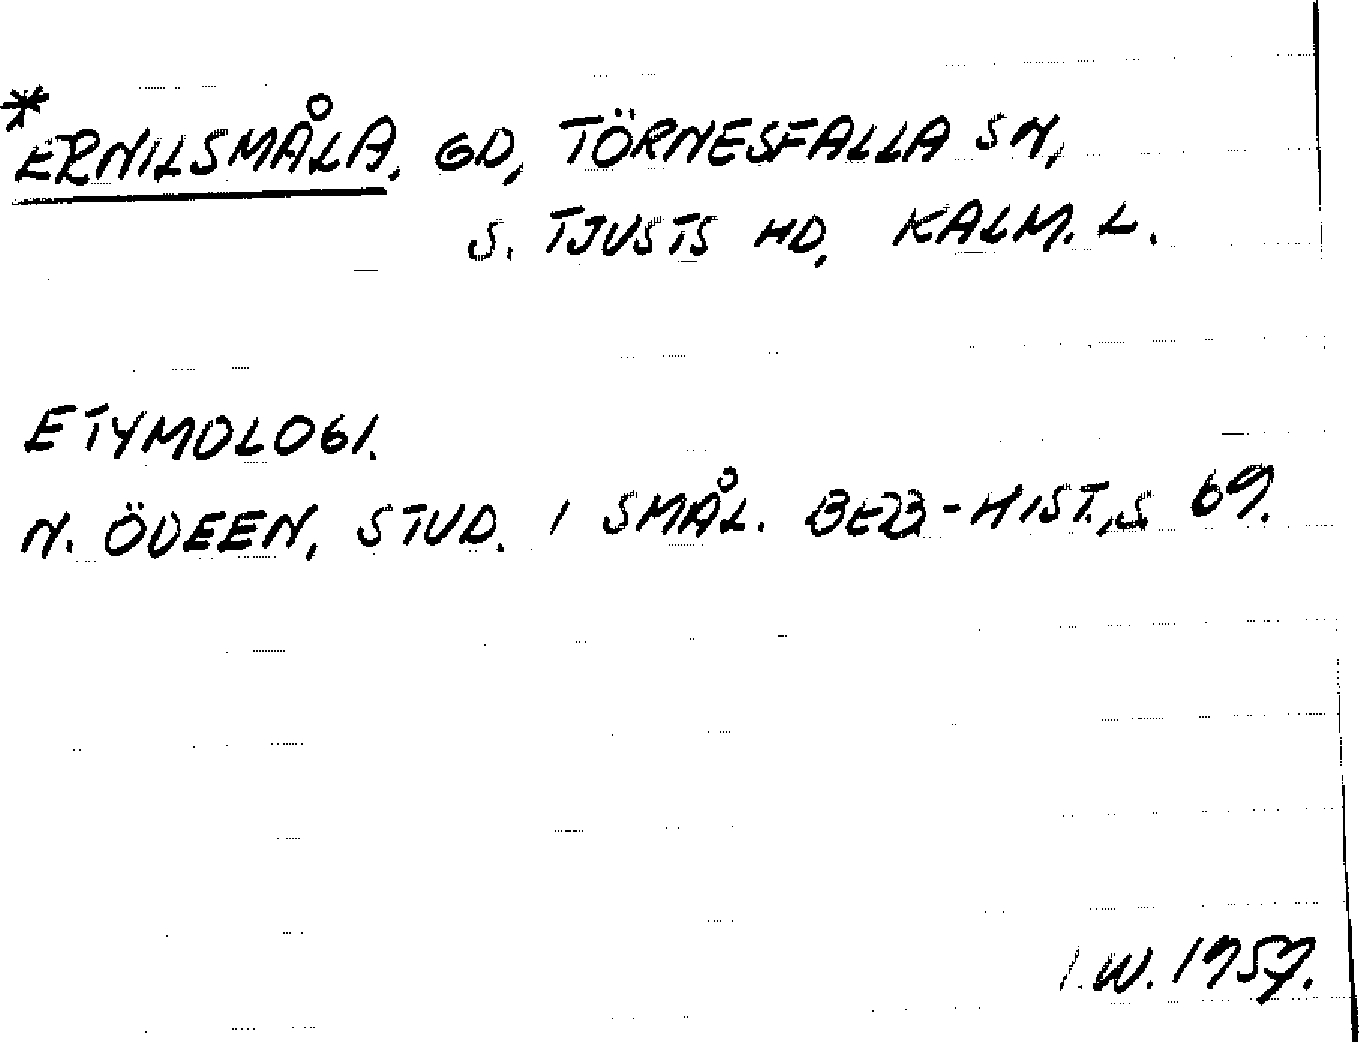 *ERNILSMÅLA, GD, TÖRNESFALLA SN,
S. TJUSTS HD, KALM. L.
ETYMOLOGI.
N. ÖDEEN, STUD. I SMÅL. BEB-HIST., S. 69.
I.W. 1957.